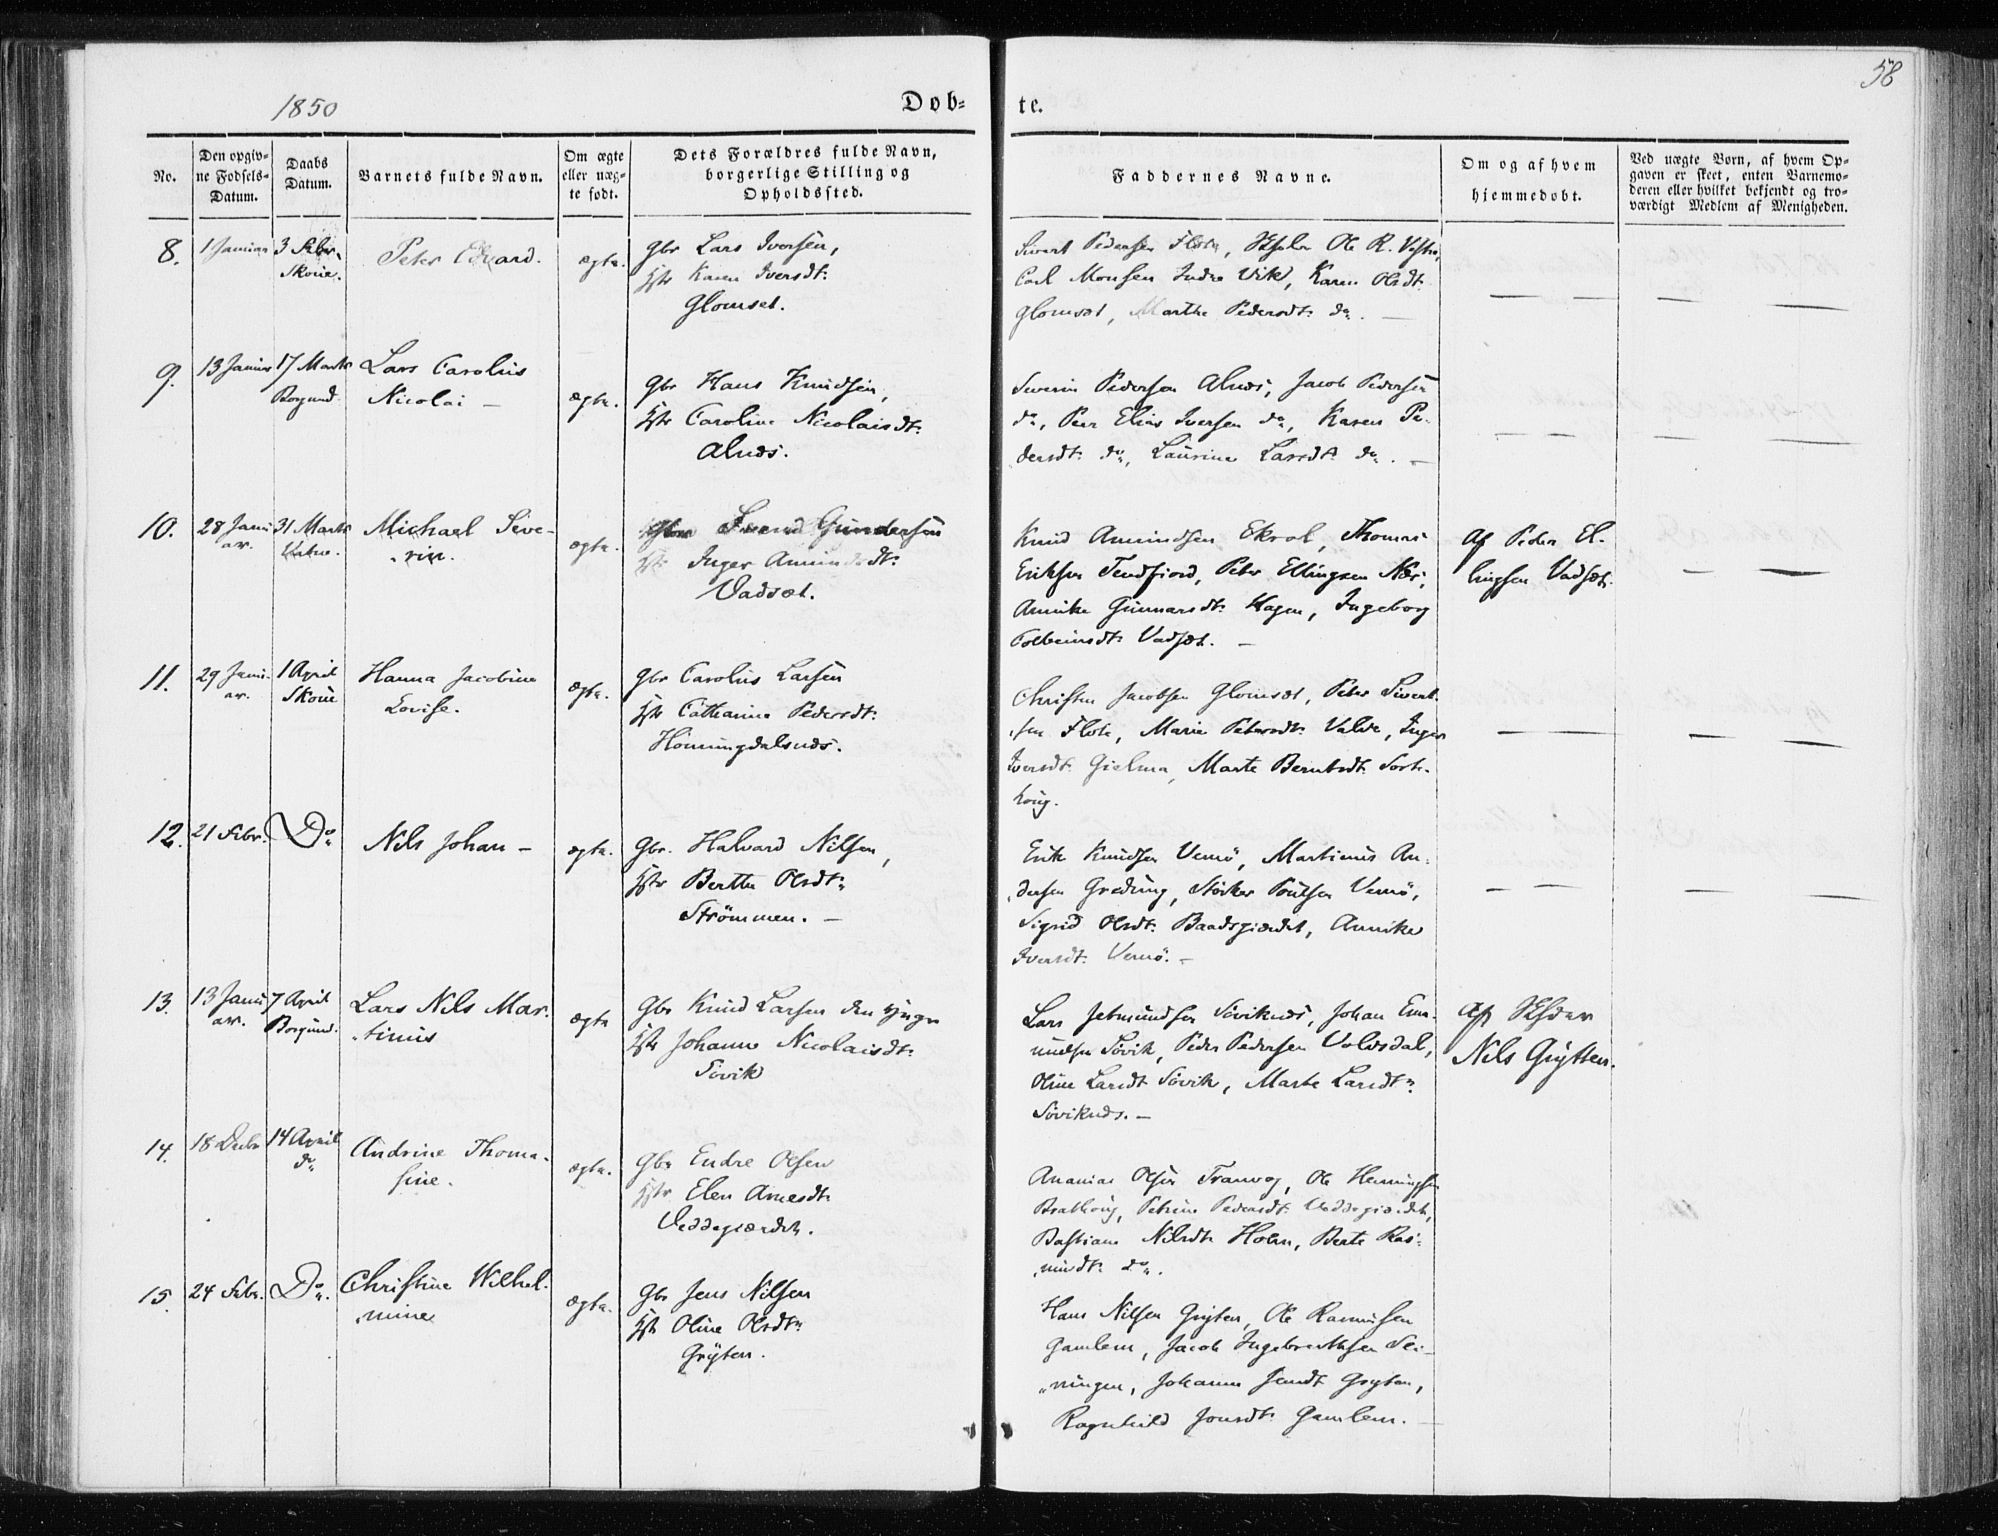 1850
Døb-
te.
58
No.
Den opgiv-
ne Fødsels-
Datum.
Daabs
Datum.
Barnets fulde Navn.
Om ægte
eller uæg-
te født.
Dets Forældres fulde Navn,
borgerlige Stilling og
Opholdssted.
Faddernes Navne.
Om og af hvem
hjemmedøbt.
Ved uægte Børn, af hvem Op-
gaven er skeet, enten Barnemo-
deren eller hvilket bekjendt og tro-
værdigt Medlem af Menigheden.
8.
1 Januar
3 Febr.
Skoue.
Peter Edvard.
ægte.
Gbr Lars Iversen,
Karen Iversdt:
Glomset.
Sivert Pedersen Flote, Ole R.
Carl Monsen Indre Vik, Karen Olsdt:
Glomset, Marthe Pedersdt: do. —
9.
13 Januar
17 Marts
Borgund.
Lars Carolus
Nicolai —
ægte.
Gbr Hans Knudsen,
Caroline Nicolaisdt:
Alnæs.
Severin Pedersen Alnæs, Jacob Pedersen
do, Peer Elias Iversen do, Karen Pe-
dersdt: do, Laurine Larsdt: do. —
10.
28 Janu
ar.
31 Marts
Vatne.
Michael Seve-
rin.
ægte.
Svend Gundersen
Inger Amundsdt:
Vadset.
Knud Amundsen Ekrol, Thomas
Eriksen Tendfiord, Peter Ellingsen Nær,
Annike Gunnarsdt: Hagen, Ingeborg
Vadset. —
Af Peder El-
lingsen Vadset.
11.
29 Janu-
ar.
1 April
Skoue
Hanna Jacobine
Lovise.
ægte.
Gbr Carolus Larsen
Catharine Pedersdt:
Honningdalsnæs.
Christen Jacobsen Glomset, Peter Sivert-
sen Flote, Marie Petersdt: Valde, Inger
Iversdt: Gielma, Marte Berntsdt: Sort-
houg.
12.
21 Febr.
Do
Nils Johan —
ægte.
Gbr. Halvard Nilsen,
Berthe Olsdt:
Strömmen. —
Erik Knudsen Vemö, Martinus An-
dersen Greding, Störker Vemö,
Sigrid Olsdt: Baadsgiærdet, Annike
Iversdt: Vemö. —
13.
13 Janu
ar.
7 April
Borgund.
Lars Nils Mar-
tinus
ægte
Gbr Knud Larsen den yngre
Johanne Nicolaisdt:
Sövik
Lars Jetmundsen Söviknæs, Johan
Sövik, Peder Pedersen Voldsdal,
Oline Larsdt Sövik, Marte Larsdt:
Söviknæs. —
Af
Nils Grytten.
14.
18 Decbr
14 April
do
Andrine Thoma-
sine.
ægte.
Gbr Endre Olsen
Elen Arnesdt:
Veddegiærdet.
Ananias Olsen Tranvog, Ole Henningsen
Brathoug, Petrine Pedersdt: Veddegiærdet,
Bastiane Nilsdt: Holen, Berte Ras-
musdt: do.
15.
24 Febr.
Do.
Christine Wilhel-
mine
ægte.
Gbr Jens Nilsen
Oline Olsdt:
Gryten.
Hans Nilsen Gryten, Ole Rasmusen
Gamlem, Jacob Ingebrethsen
Johanne Jensdt: Gryten,
Ragnhild Jonsdt: Gamlem. —